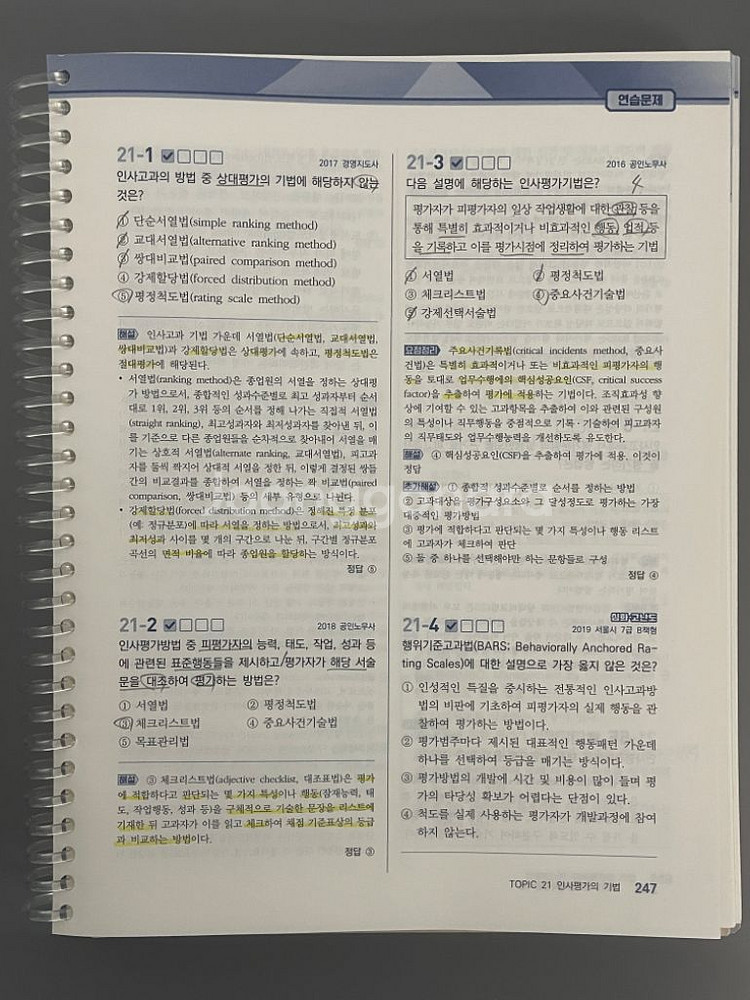 연습문제
21-1
2017 경영지도사
인사고과의 방법 중 상대평가의 기법에 해당하지 않는
것은?
① 단순서열법(simple ranking method)
② 교대서열법(alternative ranking method)
③ 쌍대비교법(paired comparison method)
④ 강제할당법(forced distribution method)
⑤ 평정척도법(rating scale method)
해설 인사고과 기법 가운데 서열법(단순서열법, 교대서열법,
쌍대비교법)과 강제할당법은 상대평가에 속하고, 평정척도법은
절대평가에 해당된다.
• 서열법(ranking method)은 종업원의 서열을 정하는 상대평
가 방법으로서, 종합적인 성과수준별로 최고 성과자부터 순서
대로 1위, 2위, 3위 등의 순서를 정해 나가는 직접적 서열법
(straight ranking), 최고성과자와 최저성과자를 찾아낸 뒤, 이
를 기준으로 다른 종업원들을 순차적으로 찾아내어 서열을 매
기는 상호적 서열법(alternate ranking, 교대서열법), 피고과
자를 둘씩 짝지어 상대적 서열을 정한 뒤, 이렇게 결정된 쌍들
간의 비교결과를 종합하여 서열을 정하는 짝 비교법(paired
comparison, 쌍대비교법) 등의 세부 유형으로 나뉜다
• 강제할당법(forced distribution method)은 정해진 특정 분포
(예: 정규분포)에 따라 서열을 정하는 방법으로서, 최고성과와
최저성과 사이를 몇 개의 구간으로 나눈 뒤, 구간별 정규분포
곡선의 면적 비율에 따라 종업원을 할당하는 방식이다.
정답 ⑤
21-2
2018 공인노무사
인사평가방법 중 피평가자의 능력, 태도, 작업, 성과 등
에 관련된 표준행동들을 제시하고 평가자가 해당 서술
문을 대조하여 평가하는 방법은?
① 서열법 ② 평정척도법
③ 체크리스트법 ④ 중요사건기술법
⑤ 목표관리법
해설 ③ 체크리스트법(adjective checklist, 대조표법)은 평가
에 적합하다고 판단되는 몇 가지 특성이나 행동(잠재능력, 태
도, 작업행동, 성과 등)을 구체적으로 기술한 문장을 리스트에
기재한 뒤 고과자가 이를 읽고 체크하여 채점 기준표상의 등급
과 비교하는 방법이다.
정답 ③
21-3
2016 공인노무사
다음 설명에 해당하는 인사평가기법은?
4
평가자가 피평가자의 일상 작업생활에 대한 관찰 등을
통해 특별히 효과적이거나 비효과적인 행동, 업적 등
을 기록하고 이를 평가시점에 정리하여 평가하는 기법
① 서열법 ② 평정척도법
③ 체크리스트법 ④ 중요사건기술법
⑤ 강제선택서술법
요점정리 주요사건기록법(critical incidents method, 중요사
건법)은 특별히 효과적이거나 또는 비효과적인 피평가자의 행
동을 토대로 업무수행에의 핵심성공요인(CSF, critical success
factor)을 추출하여 평가에 적용하는 기법이다. 조직효과성 향
상에 기여할 수 있는 고과항목을 추출하여 이와 관련된 구성원
의 특성이나 직무행동을 중점적으로 기록·기술하여 피고과자
의 직무태도와 업무수행능력을 개선하도록 유도한다.
해설 ④ 핵심성공요인(CSF)을 추출하여 평가에 적용, 이것이
정답
추가해설 ① 종합적 성과수준별로 순서를 정하는 방법
② 고과대상은 평가구성요소와 그 달성정도로 평가하는 가장
대중적인 평가방법
③ 평가에 적합하다고 판단되는 몇 가지 특성이나 행동 리스트
에 고과자가 체크하여 판단
⑤ 둘 중 하나를 선택해야만 하는 문항들로 구성
정답 ④
21-4
심화·고난도
2019 서울시 7급 B책형
행위기준고과법(BARS: Behaviorally Anchored Ra-
ting Scales)에 대한 설명으로 가장 옳지 않은 것은?
① 인성적인 특질을 중시하는 전통적인 인사고과방
법의 비판에 기초하여 피평가자의 실제 행동을 관
찰하여 평가하는 방법이다.
② 평가범주마다 제시된 대표적인 행동패턴 가운데
하나를 선택하여 등급을 매기는 방식이다.
③ 평가방법의 개발에 시간 및 비용이 많이 들며 평
가의 타당성 확보가 어렵다는 단점이 있다.
④ 척도를 실제 사용하는 평가자가 개발과정에 참여
하지 않는다.
TOPIC 21 인사평가의 기법 247